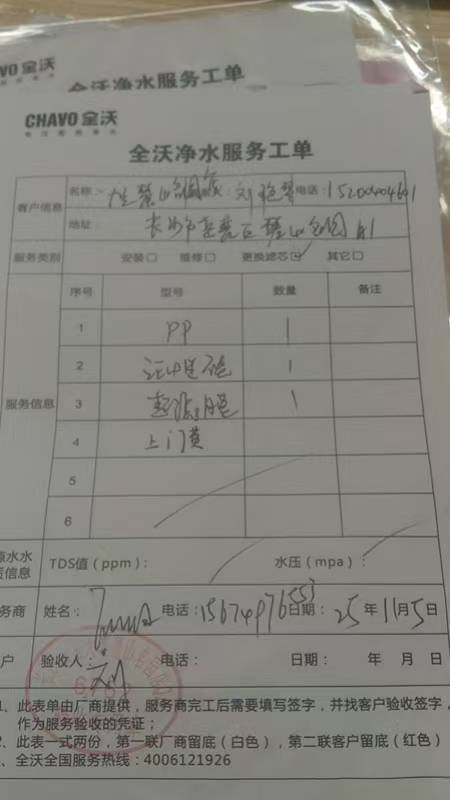 CHAVO 全沃
全沃净水服务工单
CHAVO 全沃
全沃净水服务工单
客户信息
名称： 电话：
地址： 长沙市 A1
服务类别 安装□ 维修□ 更换滤芯☑ 其它□
服务信息
序号 型号 数量 备注
1 PP 1
2 1
3 1
4 上门费
5
6
原水水质信息 TDS值（ppm）： 水压（mpa）：
务商 姓名： 电话：15674976553 日期：25年11月5日
户 验收人：刘 电话： 日期： 年 月 日
1、此表单由厂商提供，服务商完工后需要填写签字，并找客户验收签字，
作为服务验收的凭证；
2、此表一式两份，第一联厂商留底（白色），第二联客户留底（红色）
、全沃全国服务热线：4006121926